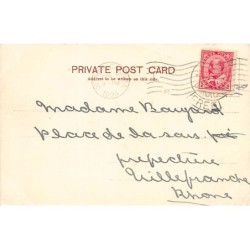 PRIVATE POST CARD
Address to be written on this side.
Madame Bayard
Place de la sous pré
préfecture
Villefranche
Rhone